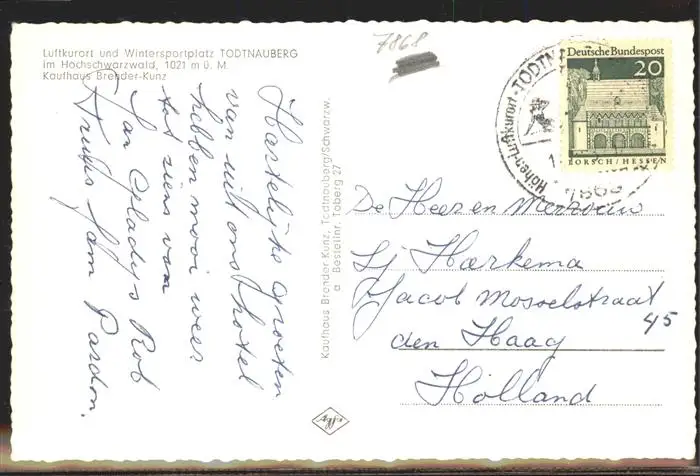 7868
Luftkurort und Wintersportplatz TODTNAUBERG
im Hochschwarzwald, 1021 m ü. M.
Kaufhaus Brender-Kunz
Hartelijke groeten
van uit ons hotel
hebben mooi weer
tot ziens van
Jan Gladys Rob
Truus Pardon.
Kaufhaus Brender Kunz, Todtnauberg/Schwarzw.
a Bestellnr. Toberg 27
Agfa
Höhen-Luftkurort · TODTNA
7868
Deutsche Bundespost
20
LORSCH/HESSEN
De Heer en Mevrouw
Harkema
Jacob Mosselstraat
45
den Haag
Holland